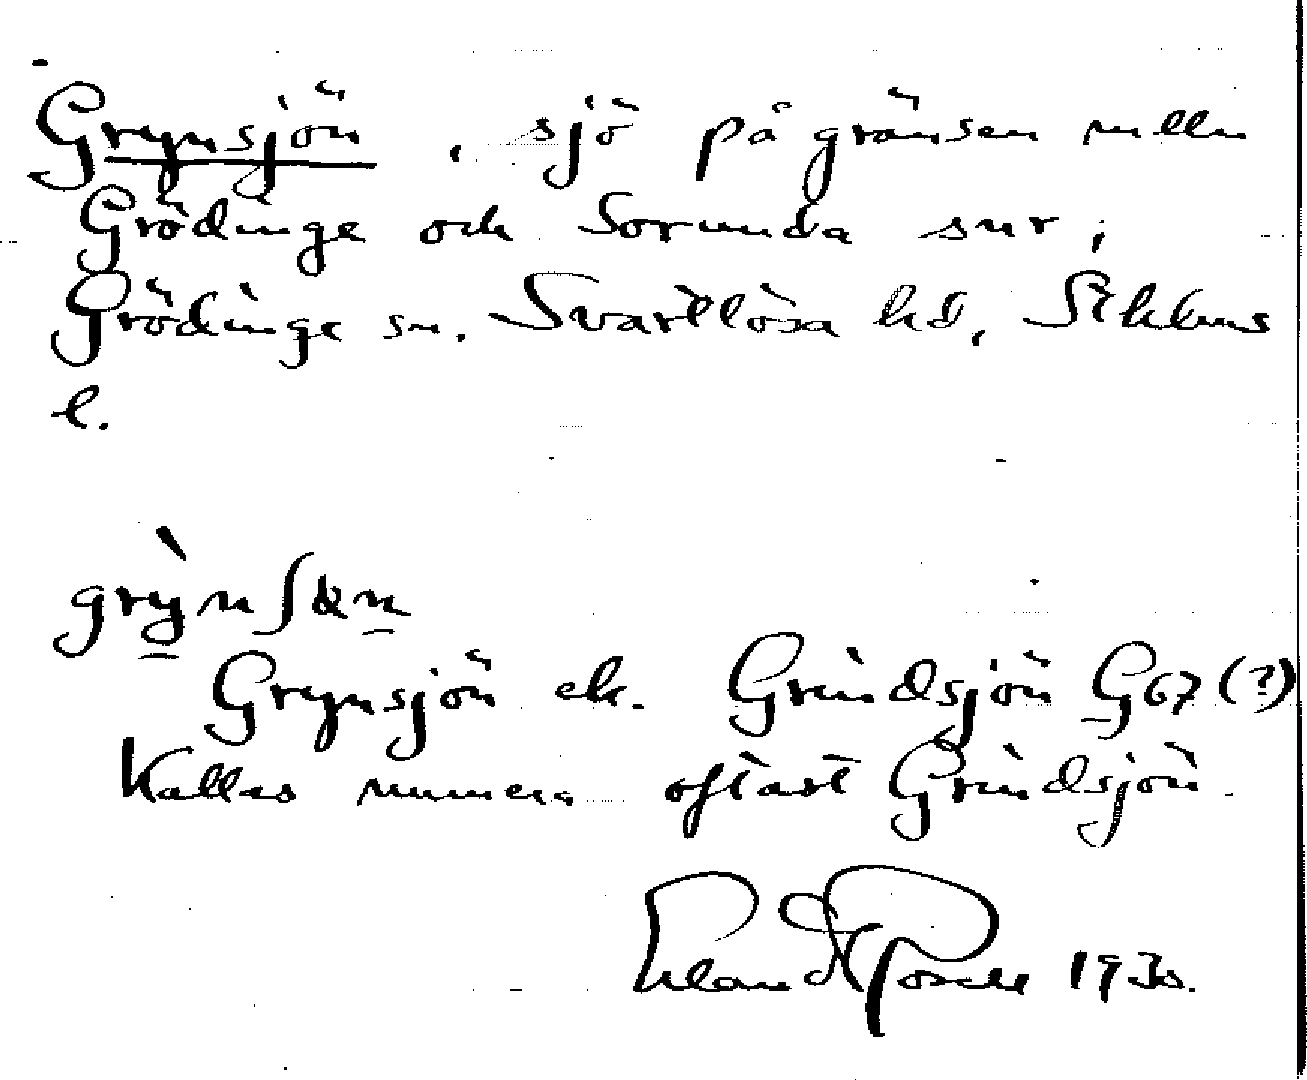 Grynsjön, sjö på gränsen mellan
Grödinge och Sorunda snr,
Grödinge sn. Svartlösa hd, Sthlms
l.
grỳnʃɷn
Grynsjön ek. Grindsjön G67 (?)
Kallas numera oftast Grindsjön.
1930.